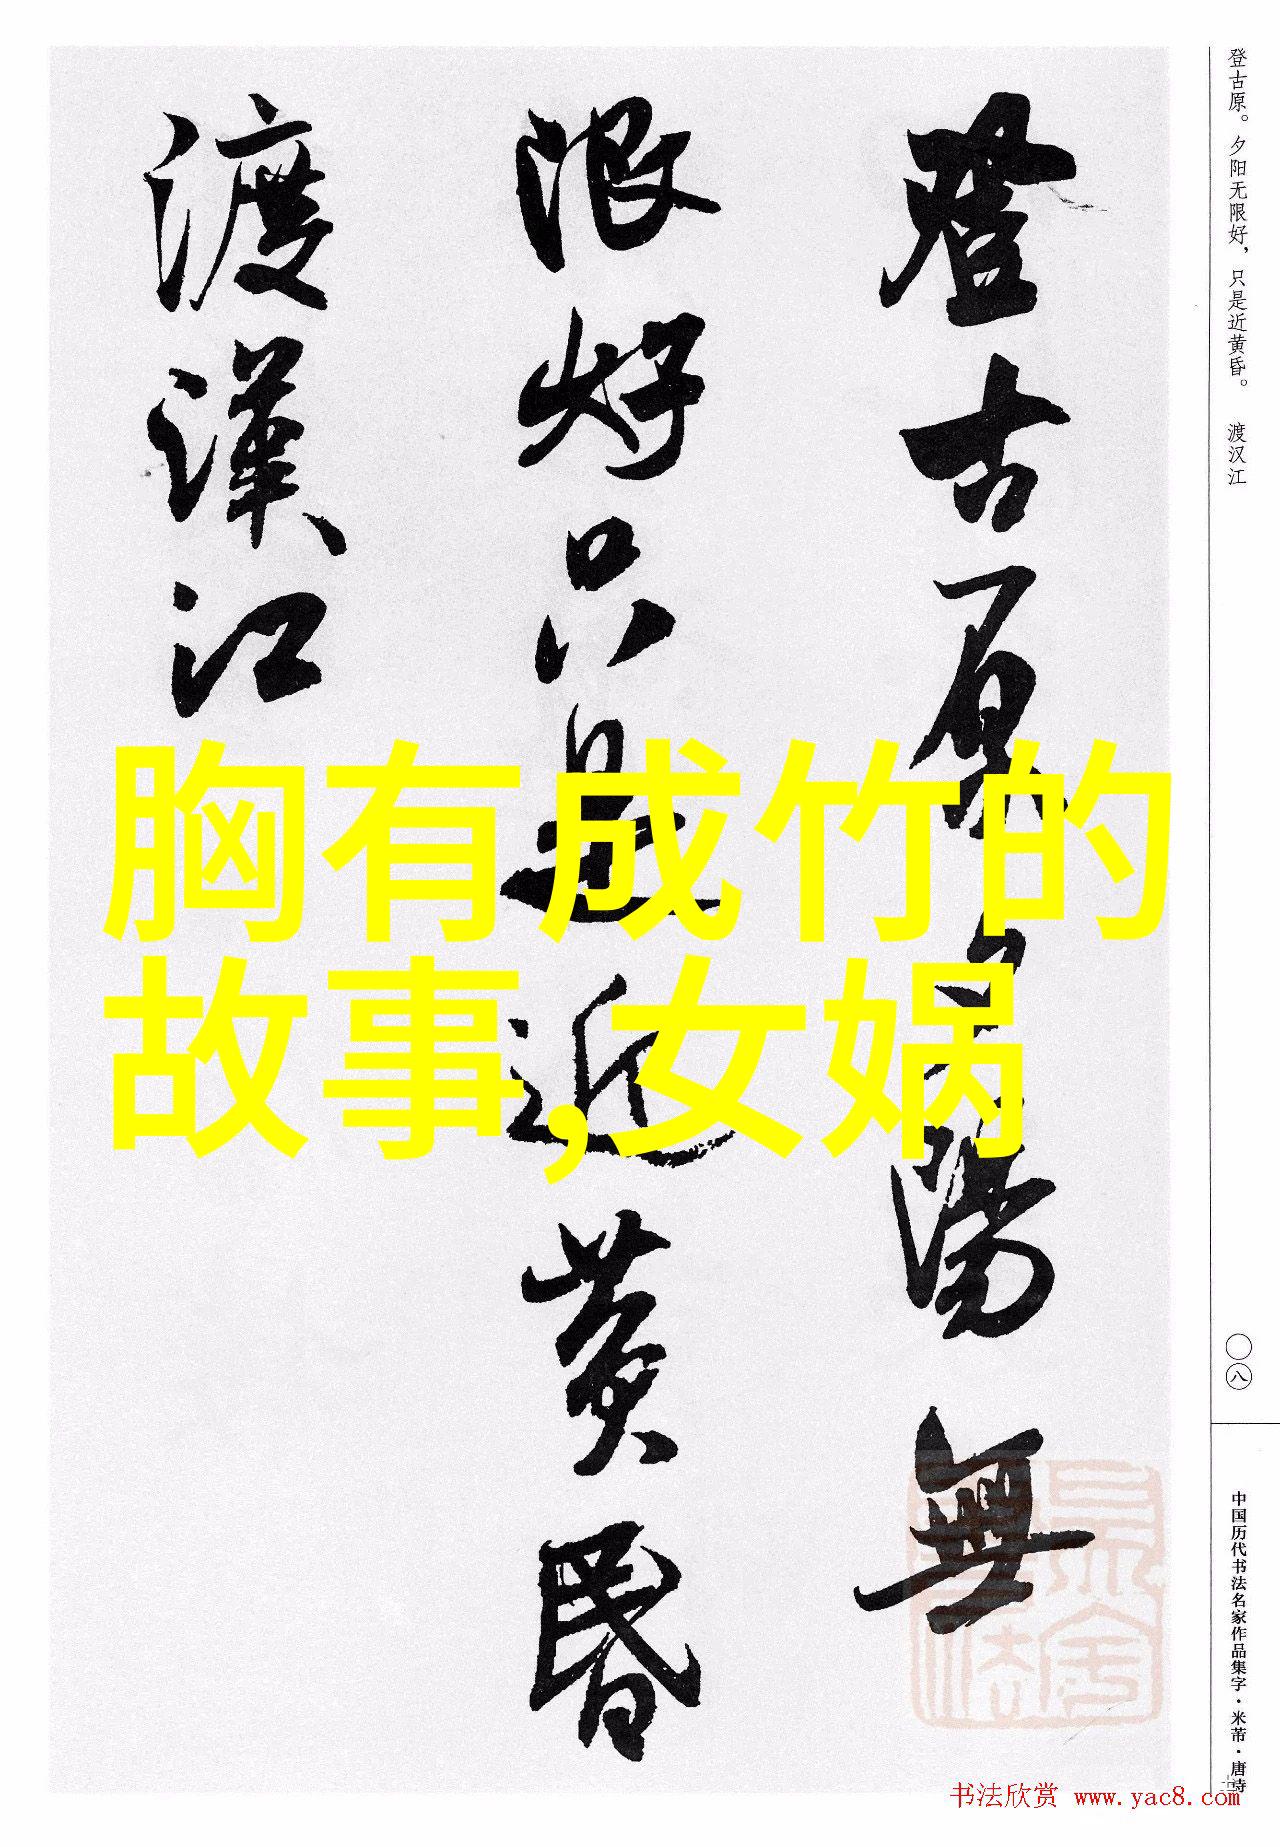 登古原夕陽無
限好只是近黄昏
渡漢江
胸有成竹的
故事,女娲
登古原。夕阳无限好，只是近黄昏。 渡汉江
〇八
中国历代书法名家作品集字·米芾·唐诗
书法欣赏 www.yac8.com